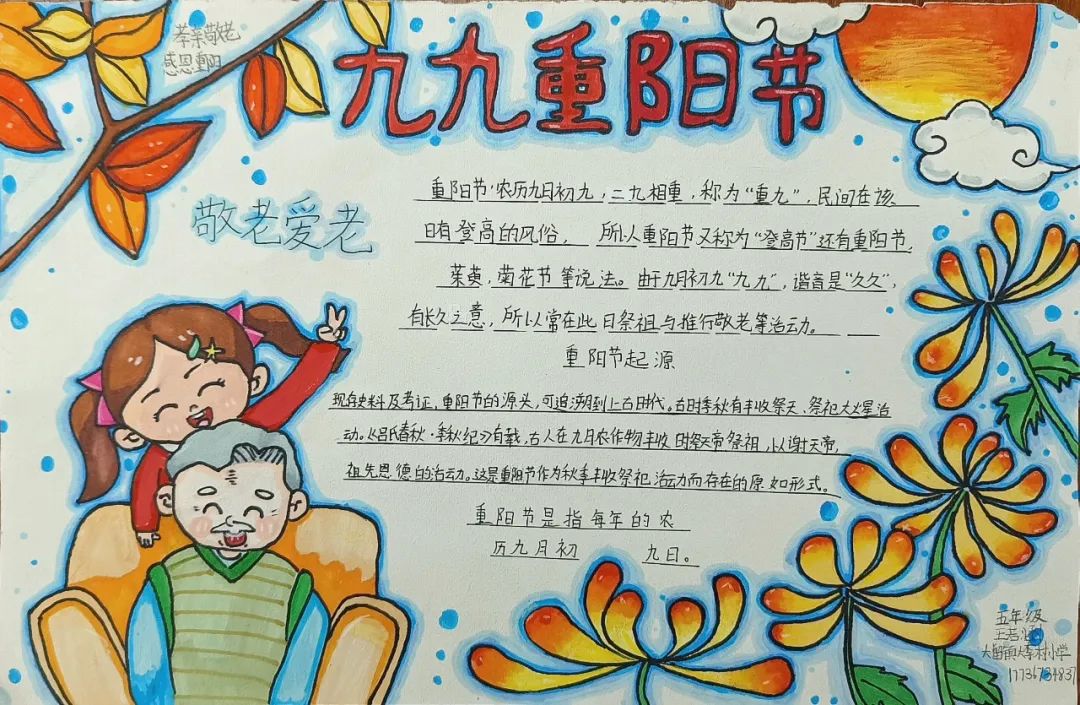 孝亲敬老
感恩重阳
九九重阳节
敬老爱老
重阳节,农历九月初九,二九相重,称为“重九”,民间在该
日有登高的风俗, 所以重阳节又称为“登高节”还有重阳节,
茱萸,菊花节等说法。由于九月初九“九九”,谐音是“久久”,
有长久之意,所以常在此日祭祖与推行敬老等活动。
重阳节起源
现存史料及考证,重阳节的源头,可追溯到上古时代。古时季秋有丰收祭天、祭祀大火星活
动。《吕氏春秋·季秋纪》有载,古人在九月农作物丰收时祭天帝祭祖,以谢天帝,
祖先恩德的活动。这是重阳节作为秋季丰收祭祀活动而存在的原如形式。
重阳节是指每年的农
历九月初 九日。
五年级
小学